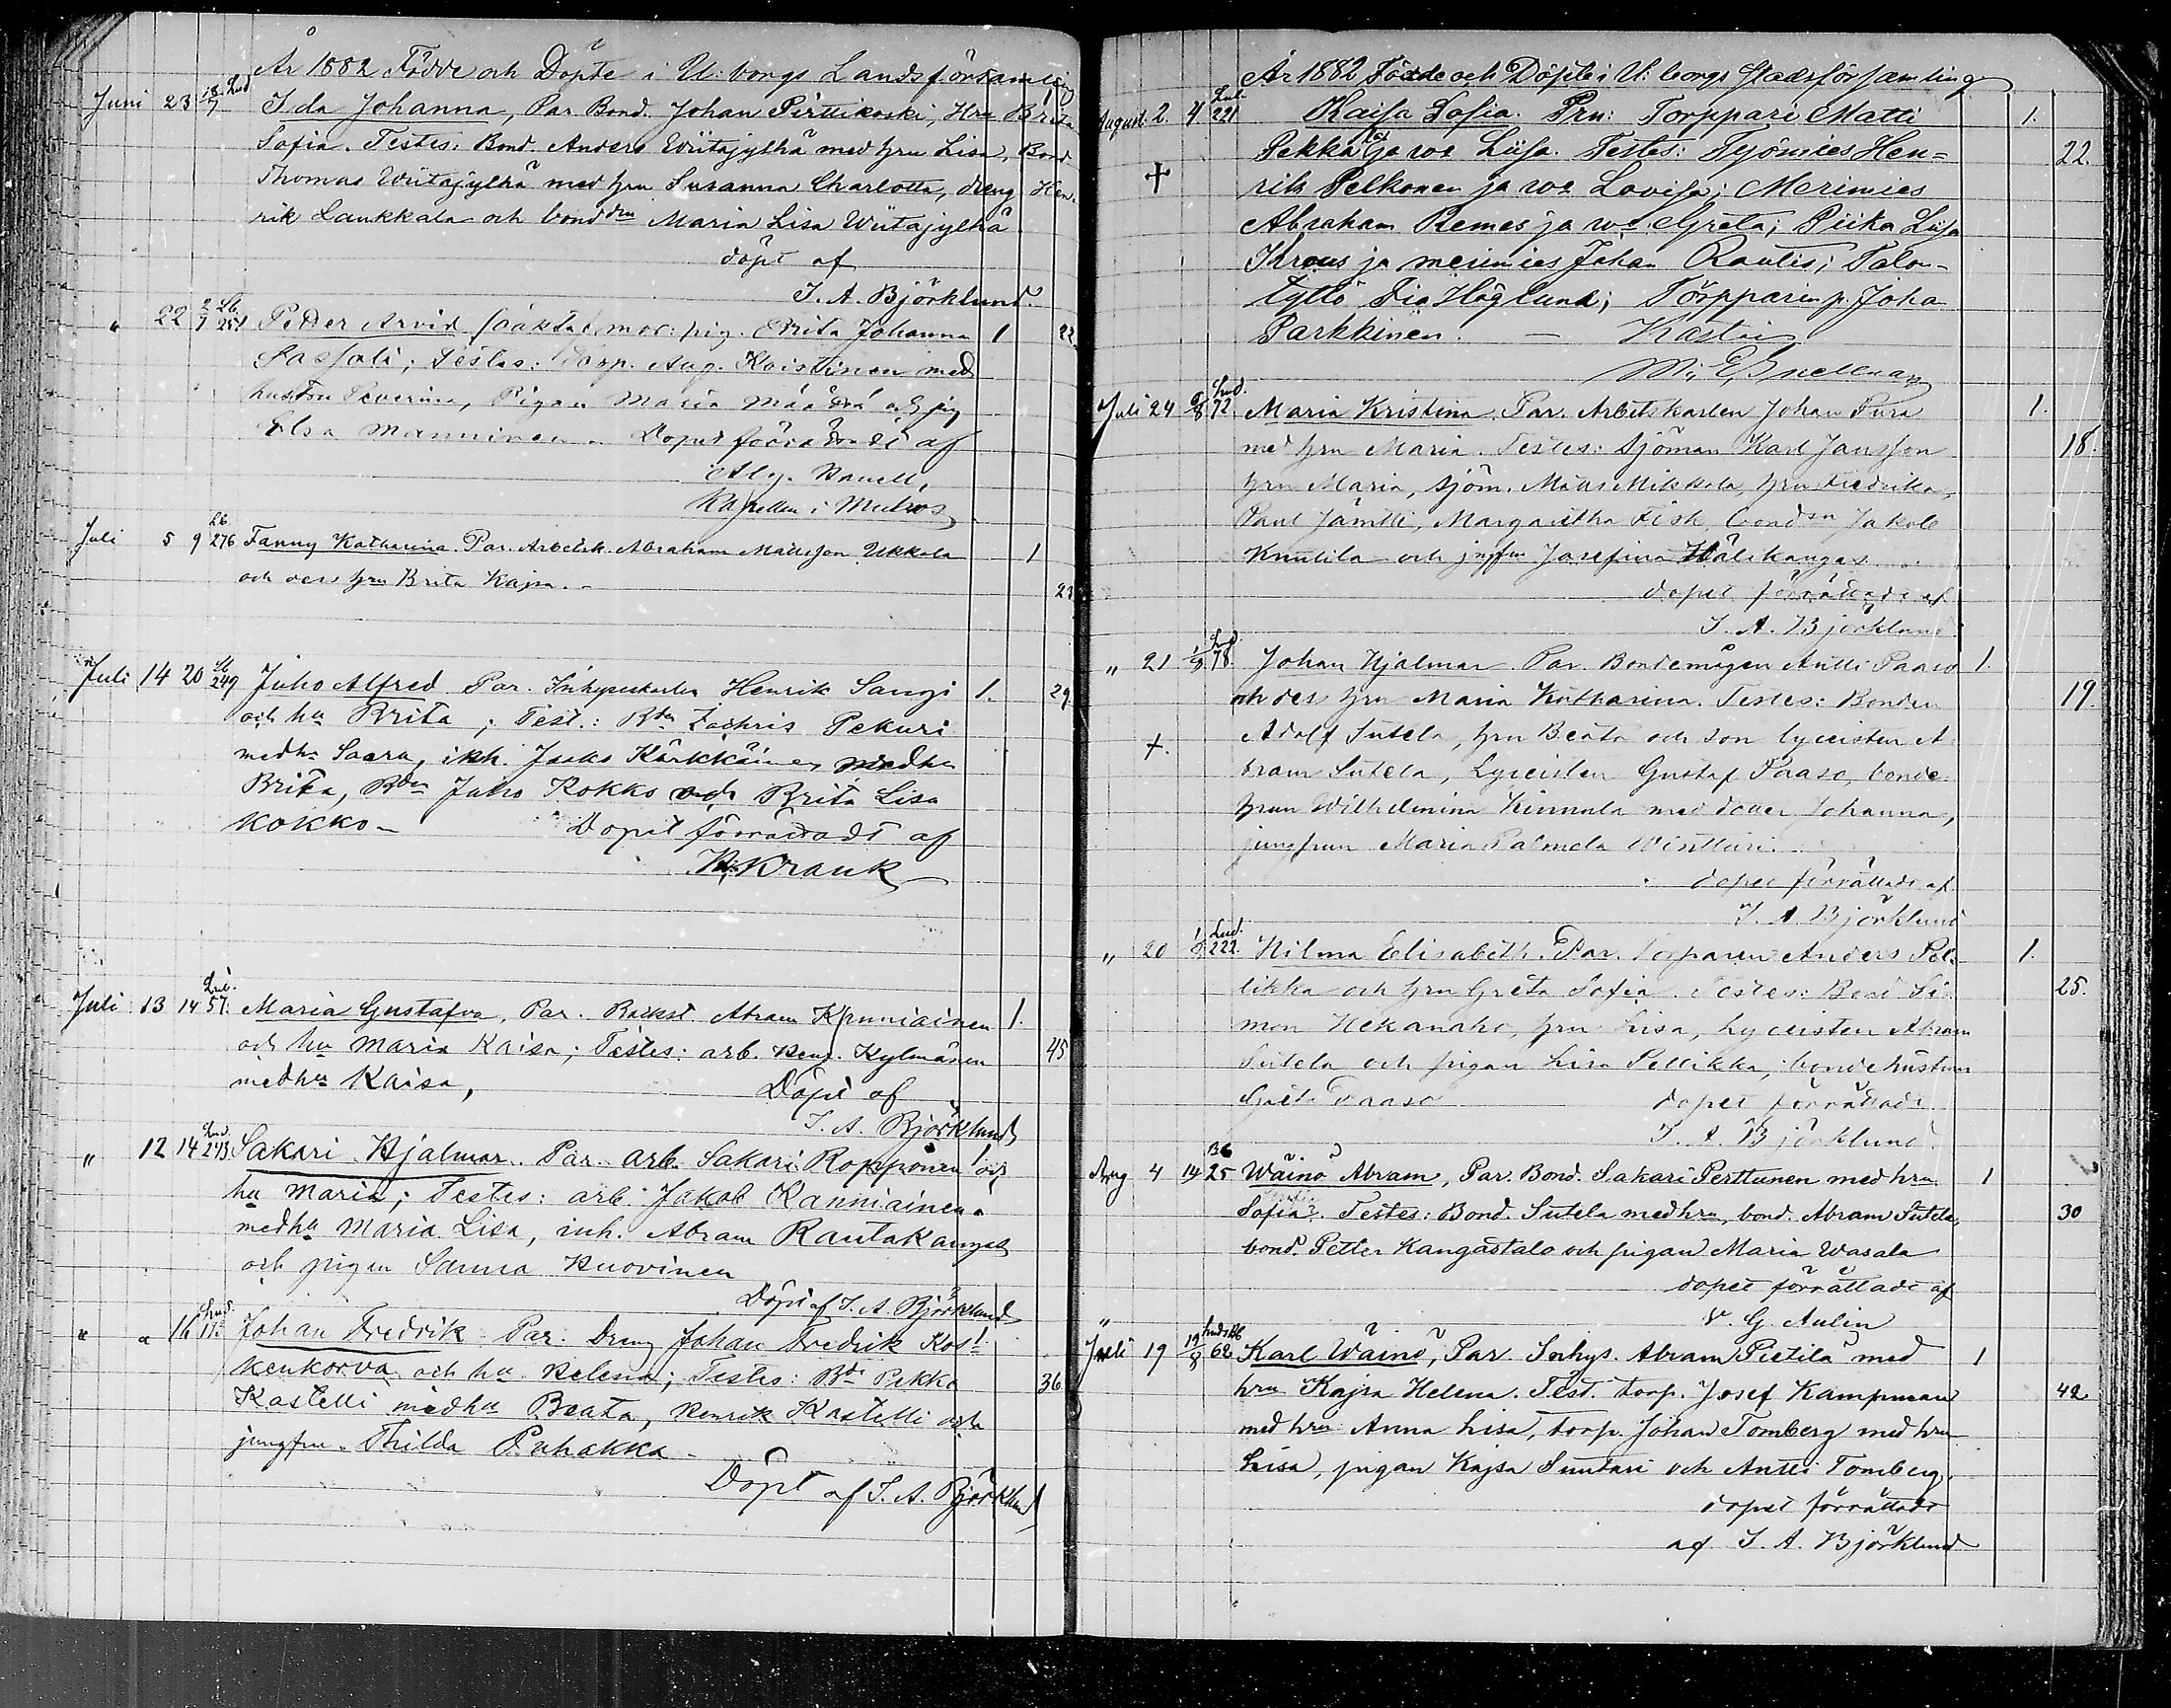 År 1882 Födde och Döpte i U:borgs Landsförsamling
Juni 23 18/7 Lud Ida Johanna, Par. Bond. Johan Pirttikoski, Hru Brita 1
Sofia. Testes: Bond. Anders Wiitajylhä med hru Lisa, Bond
Thomas Wiitajylhä med hru Susanna Charlotta, dreng Hen-
rik Laukkala och bonddn Maria Lisa Wiitajylhä
döpt af
J. A. Björklund.
" 22 2/7 Lb. 251 Petter Arvid (oäkta) mor: pig. Brita Johanna 1 22
Sassali; Testes: Torp. Aug. Koistinen med
hustru Severina, Pigan Maria Määttä och pig
Elsa Manninen. Dopet förrättadt af
Alg. Ranell,
Kapellan i Muhos
Juli 5 9 Lb. 276 Fanny Katharina. Par. Arbetsk. Abraham Mattsson Ukkola 1
och des hru Brita Kajsa. 23
Juli 14 20 Lb 249 Juho Alfred Par. Inhyseskarlen Henrik Sangi 1. 29.
och hu Brita; Test.: Bdn Zachris Pekuri
medhu Saara, inh. Jaako Kärkkäinen medhu
Brita, Bdn Juho Kokko och Brita Lisa
Kokko – Dopet förrättadt af
K. Krank
Juli 13 14 Lud. 57. Maria Gustafva, Par. Backst. Abram Kanniainen 1.
och hu Maria Kaisa; Testes: arb. Henr. Kylmänen 45
medhu Kaisa, Döpt af
J. A. Björklund
" 12 14 Lud. 243. Sakari Hjalmar. Par. arb. Sakari Ropponen och 1
hu Maria; Testes: arb. Jakob Kanniainen
medhu Maria Lisa, inh. Abram Rautakangas
och pigan Sanna Kuovinen
Döpt af J. A. Björklund
" " 16 Lud. Johan Fredrik Par. Dreng Johan Fredrik Kos- 1
kenkorva och hu Helena; Testes: Bdn Pekka 36
Kastelli medhu Beata, Henrik Kastelli och
jungfru Thilda Puhakka
Döpt af J. A. Björklund
År 1882 Födde och Döpte i U:borgs Stadsförsamling
August. 2. 4 Lud. 221 Kaisa Sofia. Prn: Torppari Matti 1.
Pekkala ja wo Liisa. Testes: Työmies Hen= 22.
† rik Pelkonen ja wo Lovisa; Merimies
Abraham Remes ja wo Greta; Piika Liisa
Krous ja merimies Johan Rautio; Talon-
tyttö Fia Höglund; Torpparinp. Joha
Parkkinen. – Kastoi
W. E. Snellman
Juli 24 6/8 Lud. 72. Maria Kristina. Par. Arbetskarlen Johan Pura 1.
med hru Maria. Testes: Sjöman Karl Jansson 18.
hru Maria, sjöm. Matts Mikkola, hru Fredrika,
Paul Jämtti, Margaretha Fisk, bondsn Jakob
Knutila och jngfrn Josefina Hälikangas
dopet förrättade af
J. A. Björklund
" 21 1/8 Lud. 78. Johan Hjalmar Par. Bondemågen Antti Paaso 1.
och des hru Maria Katharina. Testes: Bonden 19.
†. Adolf Sutela, hru Beata och son lyceisten A-
bram Sutela, Lyceisten Gustaf Paaso, bonde-
hrun Wilhelmina Kinnula med dotter Johanna,
jungfrun Maria Palmela Winttari
dopet förrättade af
J. A. Björklund
" 20 1/8 Lud. 222. Hilma Elisabeth. Par. Torparen Anders Pel- 1.
likka och hru Greta Sofia. Testes: Bond Si- 25.
mon Hekanaho, hru Lisa, lyceisten Abram
Sutela och pigan Lisa Pellikka, bondehustrun
Greta Paaso dopet förrättade
J. A. Björklund
Aug 4 14 B6 25 Wäinö Abram, Par. Bond. Sakari Perttunen med hru 1
Sofia. Testes: Bond. Sutela med hru, bond. Abram Sutela, 30
bond. Petter Kangastalo och pigan Maria Wasala
dopet förrättade af
V. G. Aulin
" Juli 19 12/8 Lud. 62 Karl Wäinö, Par. Inhys. Abram Pietilä med 1
hru Kajsa Helena. Test. torp. Josef Kampman 42.
med hru Anna Lisa, torp. Johan Tomberg med hru
Lisa, pigan Kajsa Suutari och Antti Tomberg,
dopet förrättade
af J. A. Björklund